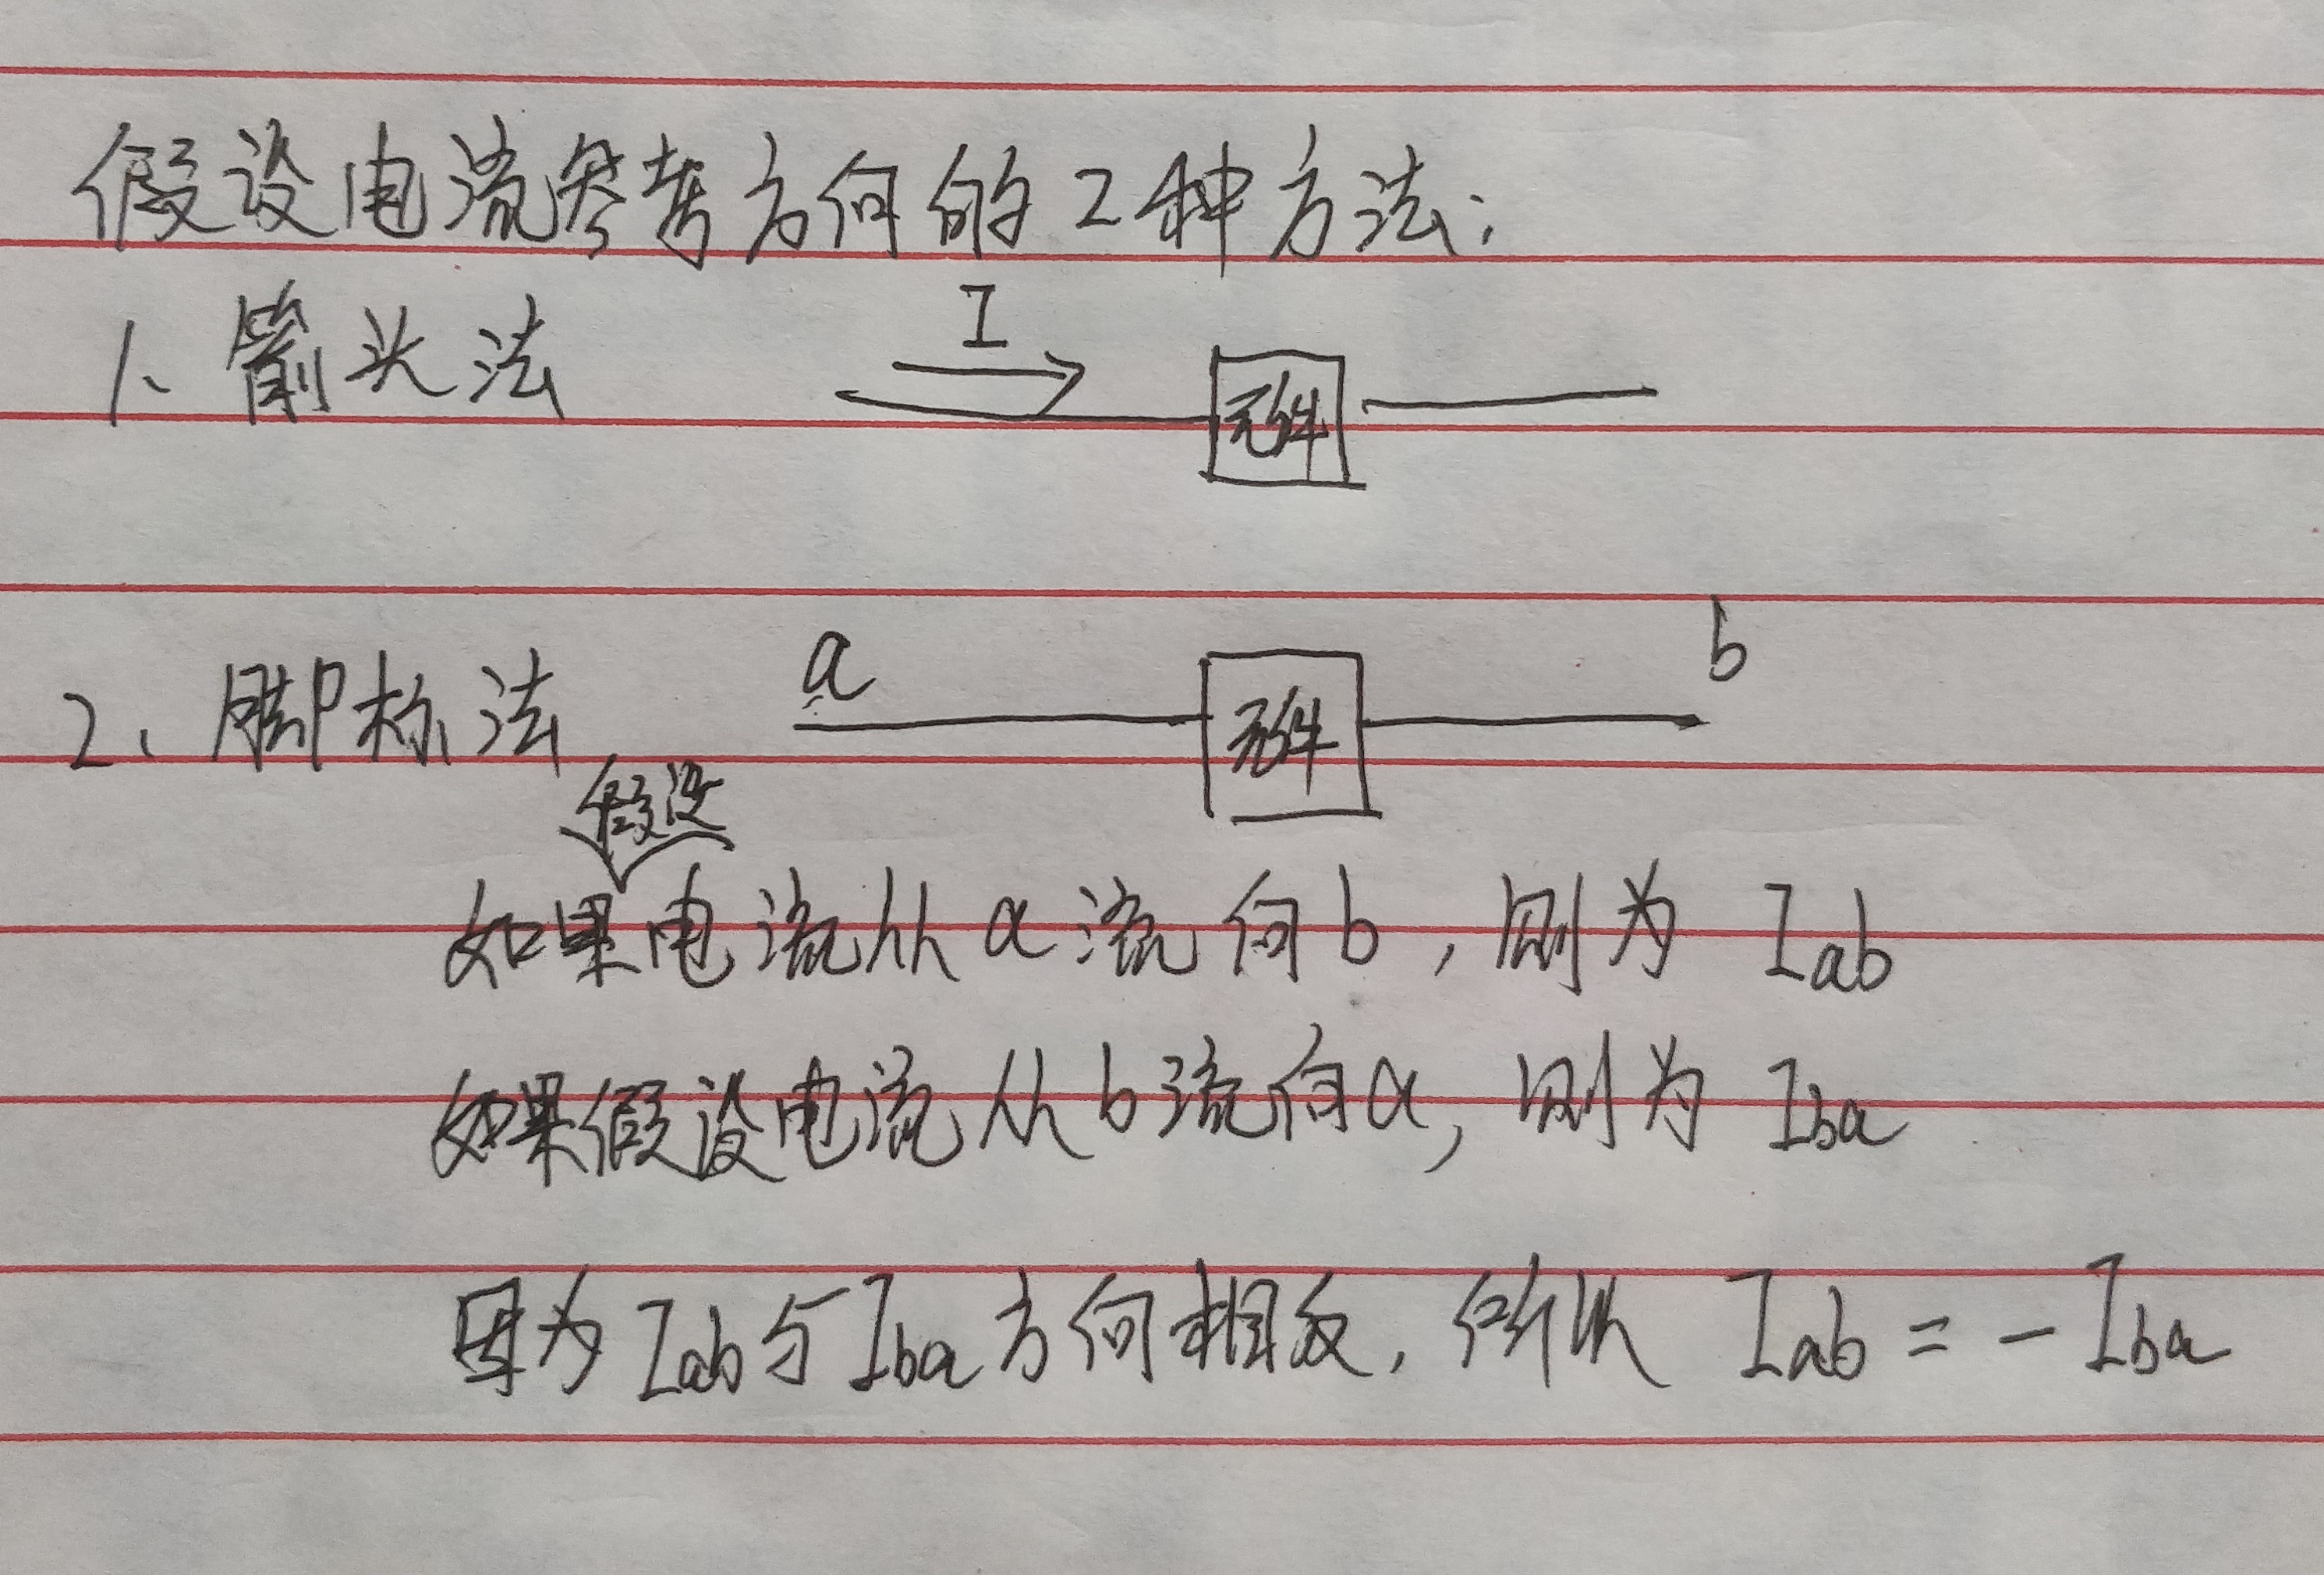 假设电流参考方向的2种方法:
1、箭头法
I
元件
2、脚标法
a
b
元件
如果假设电流从a流向b,则为 Iab
如果假设电流从b流向a,则为 Iba
因为Iab与Iba方向相反,所以 Iab = - Iba